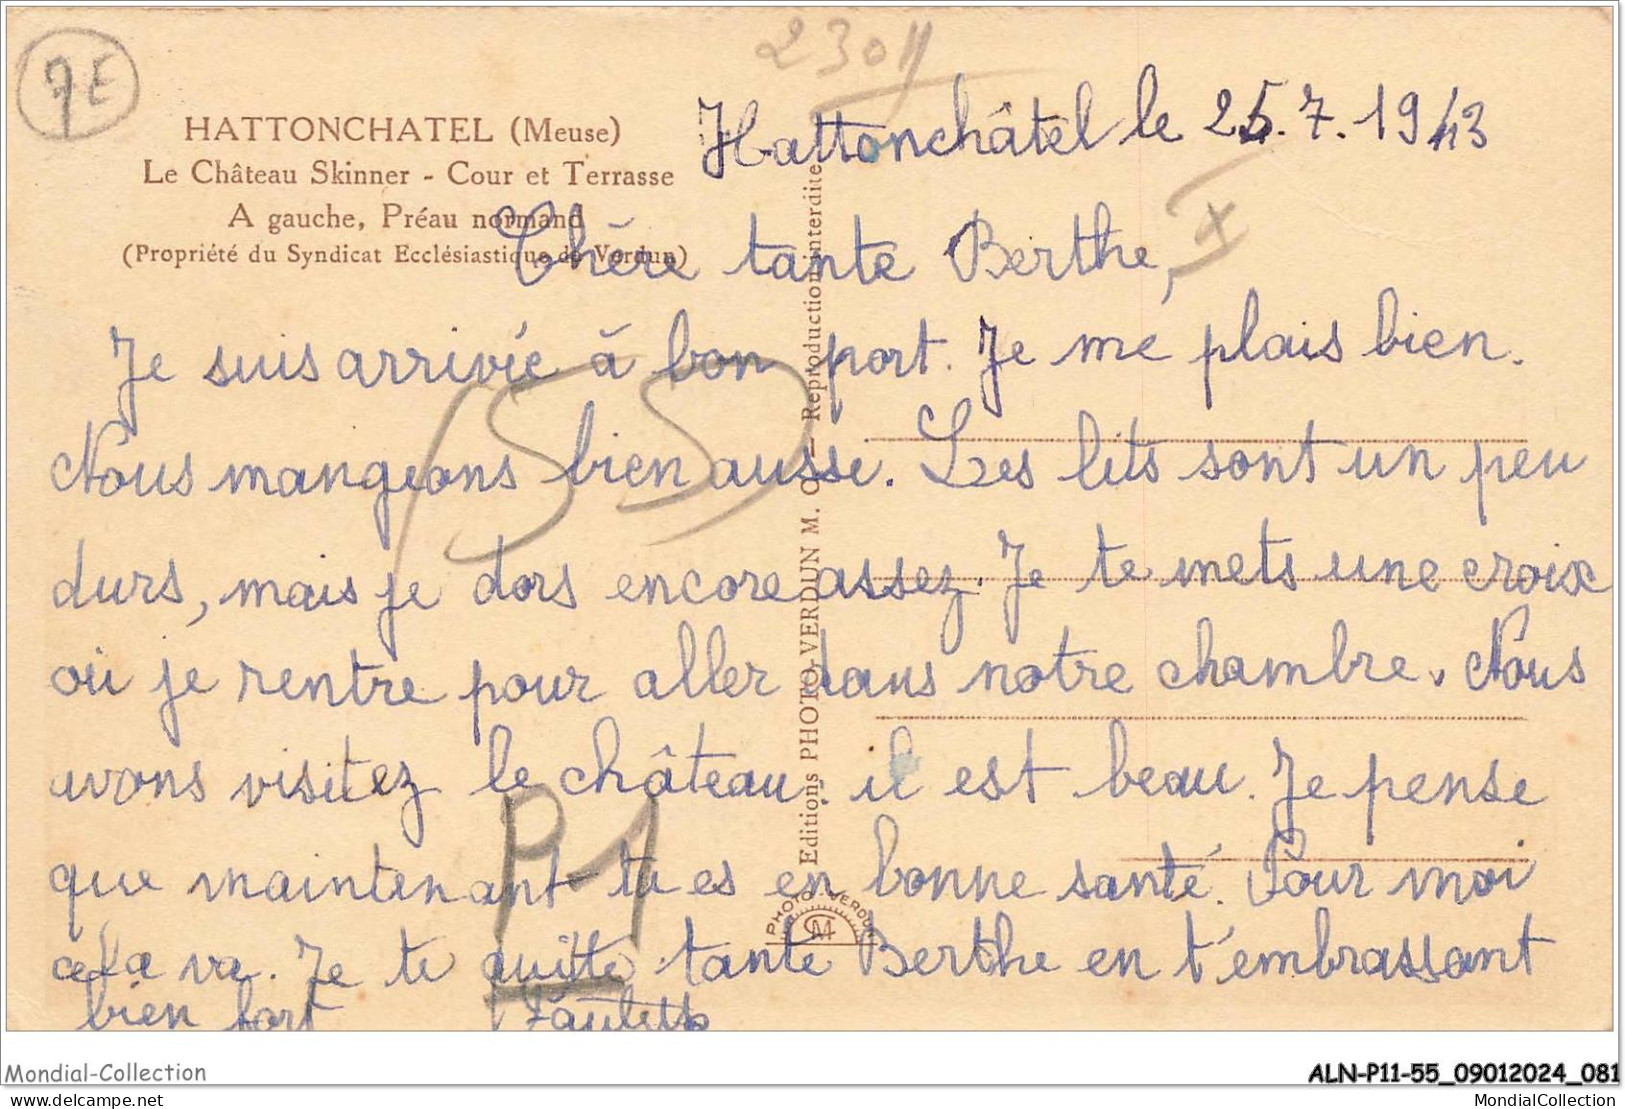 7E
2301
HATTONCHATEL (Meuse)
Le Château Skinner - Cour et Terrasse
A gauche, Préau normand
(Propriété du Syndicat Ecclésiastique de Verdun)
Hattonchâtel le 25.7.1943
Chère tante Berthe,
Je suis arrivée à bon port. Je me plais bien.
Nous mangeons bien ausse. Les lits sont un peu
durs, mais je dors encore assez. Je te mets une croix
où je rentre pour aller dans notre chambre. Nous
avons visitez le château. il est beau. Je pense
que maintenant tu es en bonne santé. Pour moi
cela va. Je te quitte tante Berthe en t'embrassant
bien fort Paulette
155
P1
Editions PHOTO-VERDUN M. C. - Reproduction interdite
PHOTO-VERDUN
CM
Mondial-Collection
ALN-P11-55_09012024_081
mondial-collection
MondialCollection